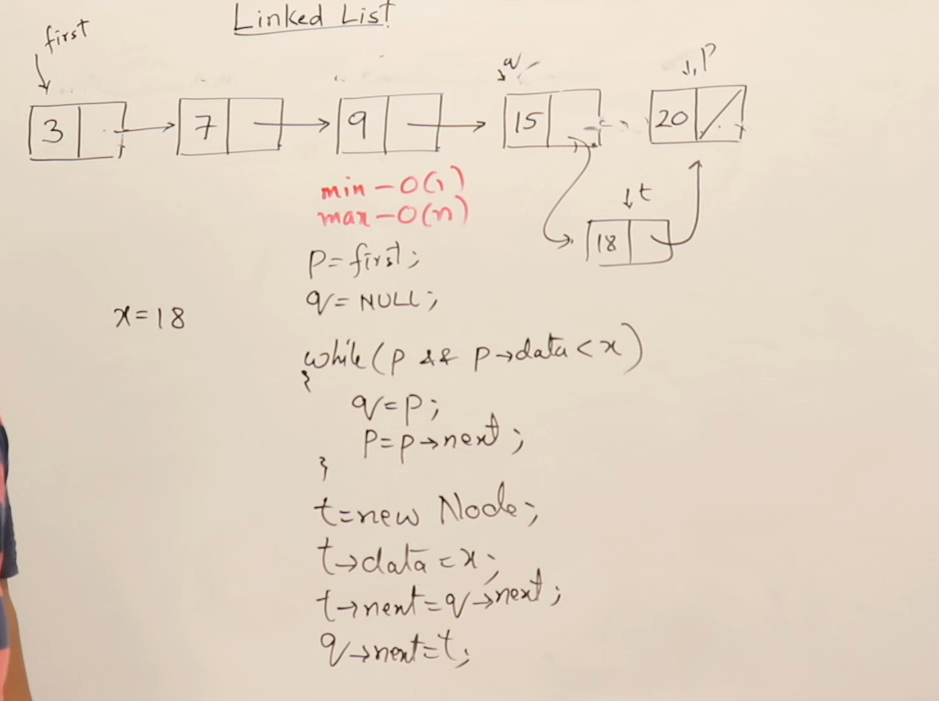 Linked List
first
q
p
3
7
9
15
20
t
18
min - O(1)
max - O(n)
p = first;
q = NULL;
x = 18
while(p && p→data < x)
{
q = p;
p = p→next;
}
t = new Node;
t→data = x;
t→next = q→next;
q→next = t;